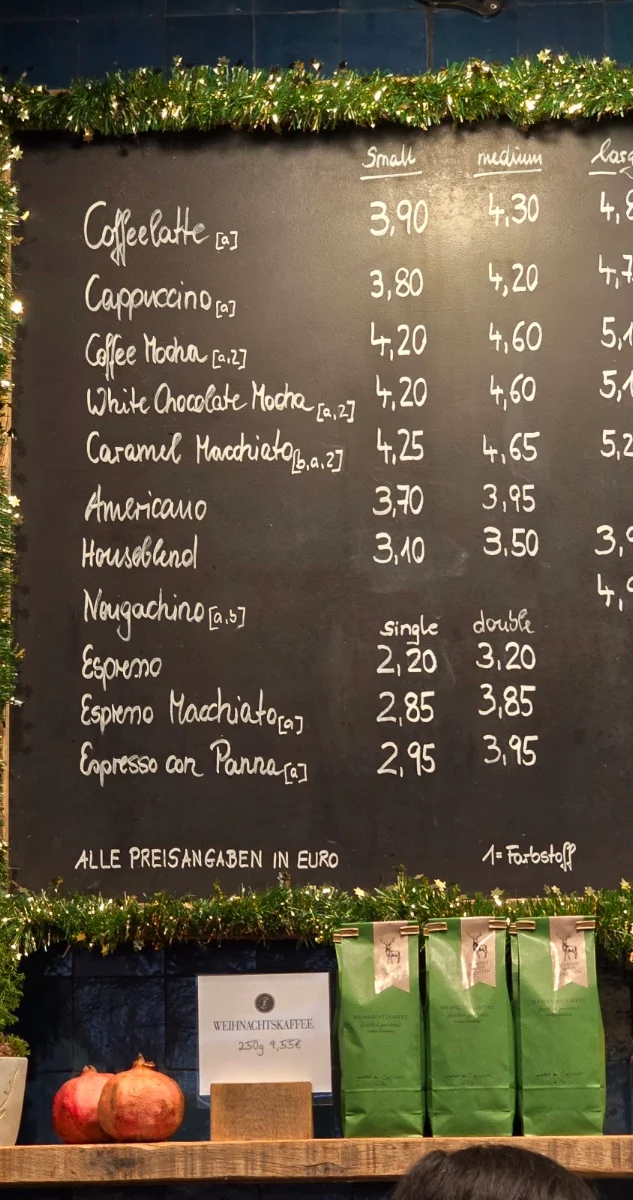 Small medium
Coffeelatte [a] 3,90 4,30
Cappuccino [a] 3,80 4,20
Coffee Mocha [a,2] 4,20 4,60
White Chocolate Mocha [a,2] 4,20 4,60
Caramel Macchiato [b,a,2] 4,25 4,65
Americano 3,70 3,95
Houseblend 3,10 3,50
Nougachino [a,b]
single double
Espresso 2,20 3,20
Espresso Macchiato [a] 2,85 3,85
Espresso con Panna [a] 2,95 3,95
ALLE PREISANGABEN IN EURO 1= Farbstoff
WEIHNACHTSKAFFEE
250g 9,55€
WEIHNACHTSKAFFEE
WEIHNACHTSKAFFEE
WEIHNACHTSKAFFEE